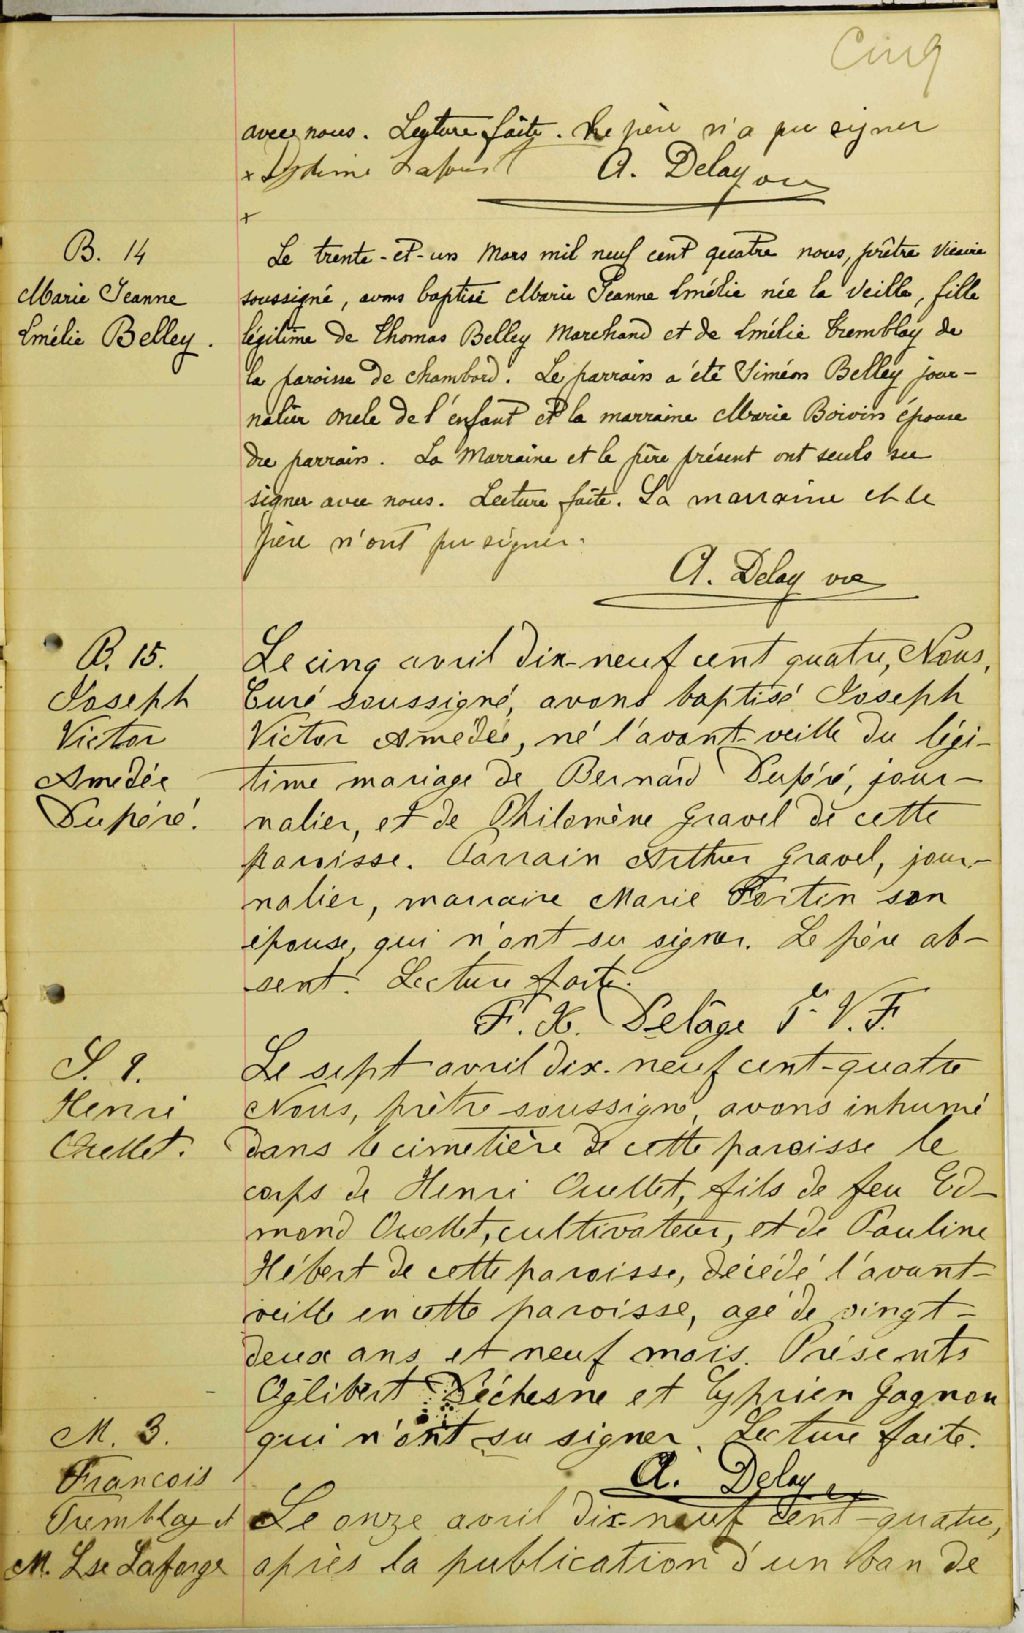 Cinq
avec nous. Lecture faite. Le père n'a pu signer
A. Delay vre
B. 14
Marie Jeanne
Emélie Belley.
Le trente-et-un Mars mil neuf cent quatre nous, prêtre vicaire
soussigné, avons baptisé Marie Jeanne Emélie née la veille, fille
légitime de Thomas Belley Marchand et de Emélie Tremblay de
la paroisse de Chambord. Le parrain a été Siméon Belley jour-
nalier oncle de l'enfant et la marraine Marie Boivin épouse
du parrain. La Marraine et le père présent ont seuls su
signer avec nous. Lecture faite. La marraine et le
père n'ont pu signer.
A. Delay vre
B. 15.
Joseph
Victor
Amédée
Dupéré.
Le cinq avril dix-neuf cent quatre, Nous,
Curé soussigné, avons baptisé Joseph
Victor Amédée, né l'avant-veille du légi-
time mariage de Bernard Dupéré, jour-
nalier, et de Philomène Gravel de cette
paroisse. Parrain Arthur Gravel, jour-
nalier, marraine Marie Fortin son
épouse, qui n'ont su signer. Le père ab-
sent. Lecture faite.
F. X. Delâge Ptre V.F.
S. 9.
Henri
Ouellet.
Le sept avril dix-neuf cent-quatre
Nous, prêtre soussigné, avons inhumé
dans le cimetière de cette paroisse le
corps de Henri Ouellet, fils de feu Ed-
mond Ouellet, cultivateur, et de Pauline
Hébert de cette paroisse, décédé l'avant-
veille en cette paroisse, agé de vingt-
deux ans et neuf mois. Présents
Déchesne et Cyprien Gagnon
qui n'ont su signer. Lecture faite.
A. Delay
M. 3.
François
Tremblay et
M. Lse Laforge
Le onze avril dix-neuf cent-quatre,
après la publication d'un ban de